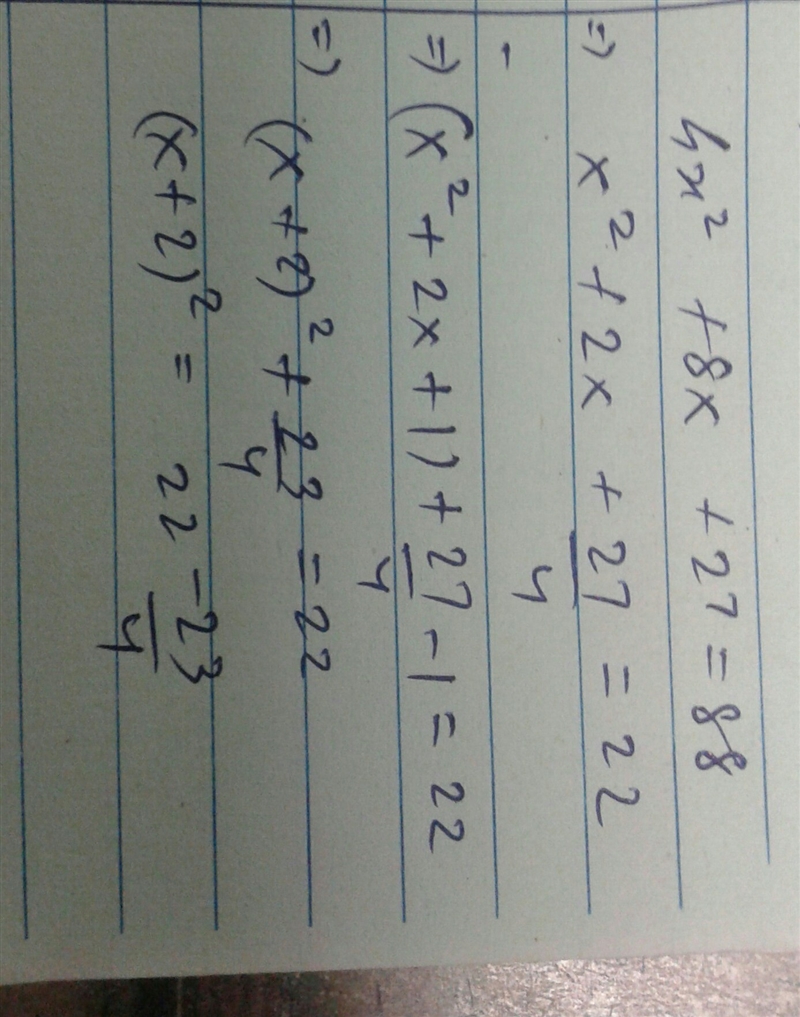 4x² + 8x + 27 = 88
⇒ x² + 2x + 27/4 = 22
-
⇒ (x² + 2x + 1) + 27/4 - 1 = 22
⇒ (x + 2)² + 23/4 = 22
(x + 2)² = 22 - 23/4